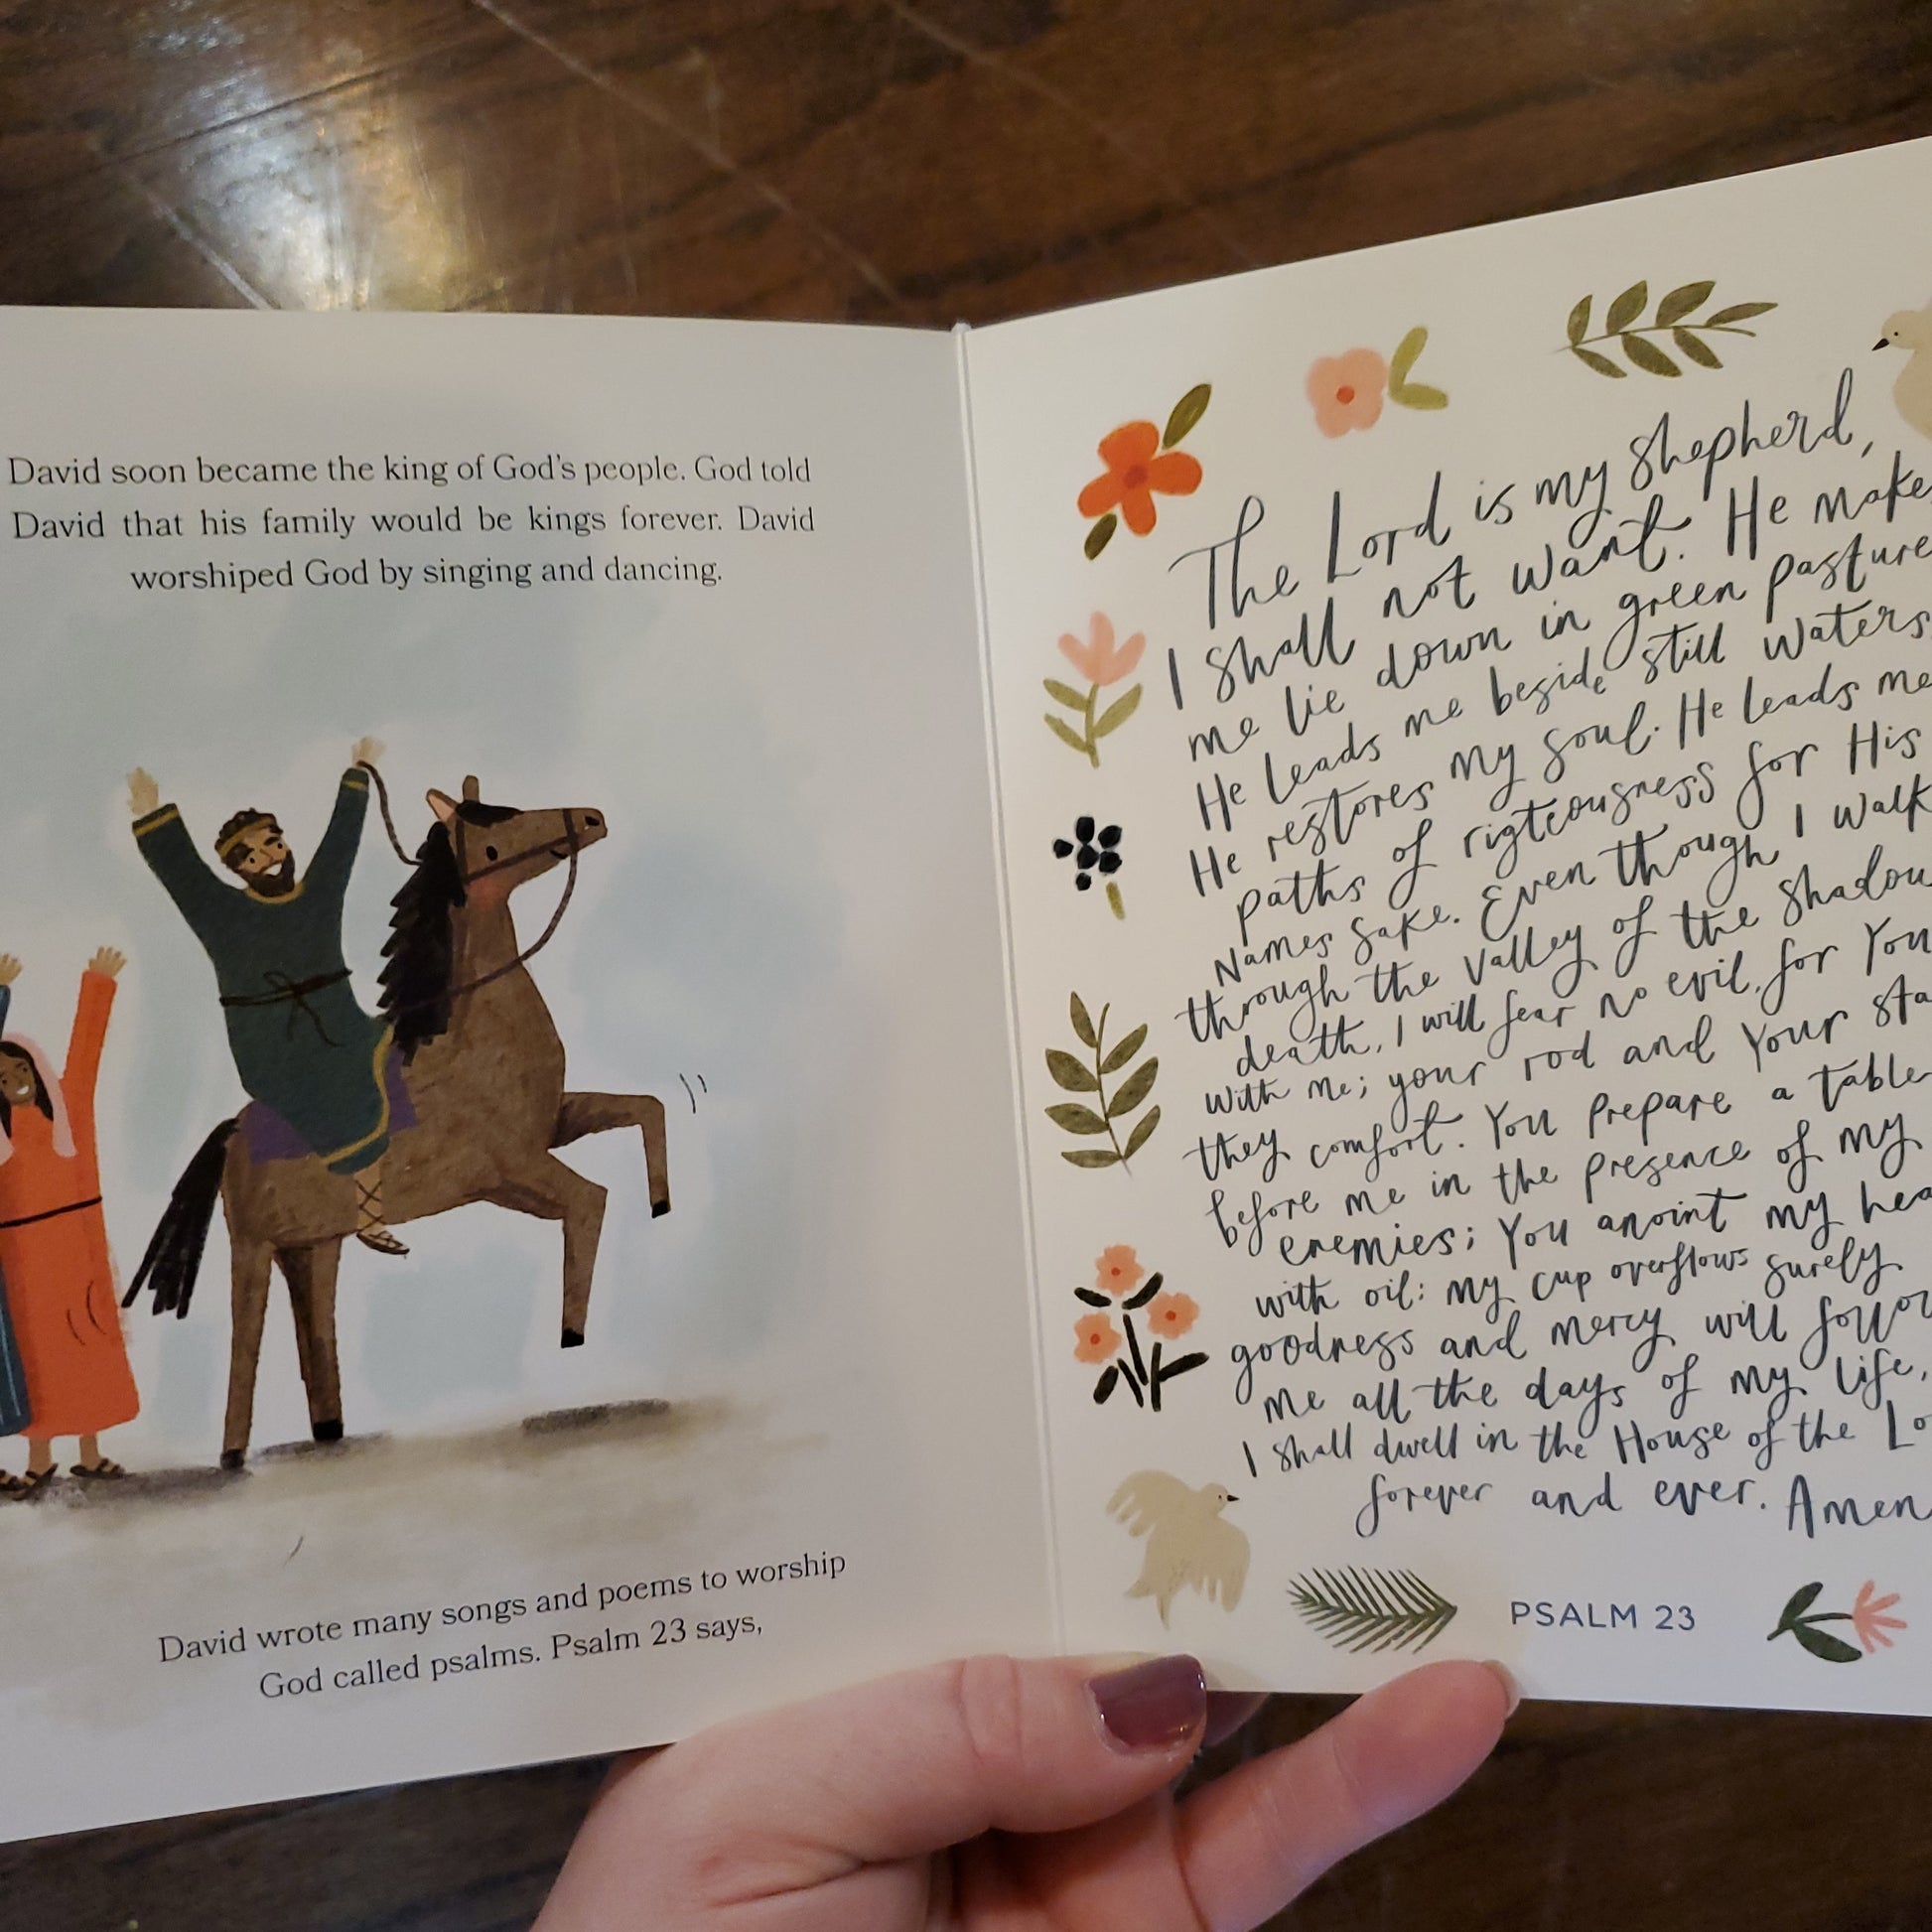 David soon became the king of God's people. God told
David that his family would be kings forever. David
worshiped God by singing and dancing.
David wrote many songs and poems to worship
God called psalms. Psalm 23 says,
The Lord is my shepherd,
I shall not want. He make
me lie down in green pasture
He leads me beside still waters
He restores my soul. He leads me
paths of rigteousness for His
Names sake. Even though I walk
through the valley of the shadow
death, I will fear no evil, for You
with me; your rod and Your sta
they comfort. You prepare a table
before me in the presence of my
enemies; You anoint my hea
with oil: my cup overflows surely
goodness and mercy will follow
me all the days of my life,
I shall dwell in the House of the Lo
forever and ever. Amen
PSALM 23